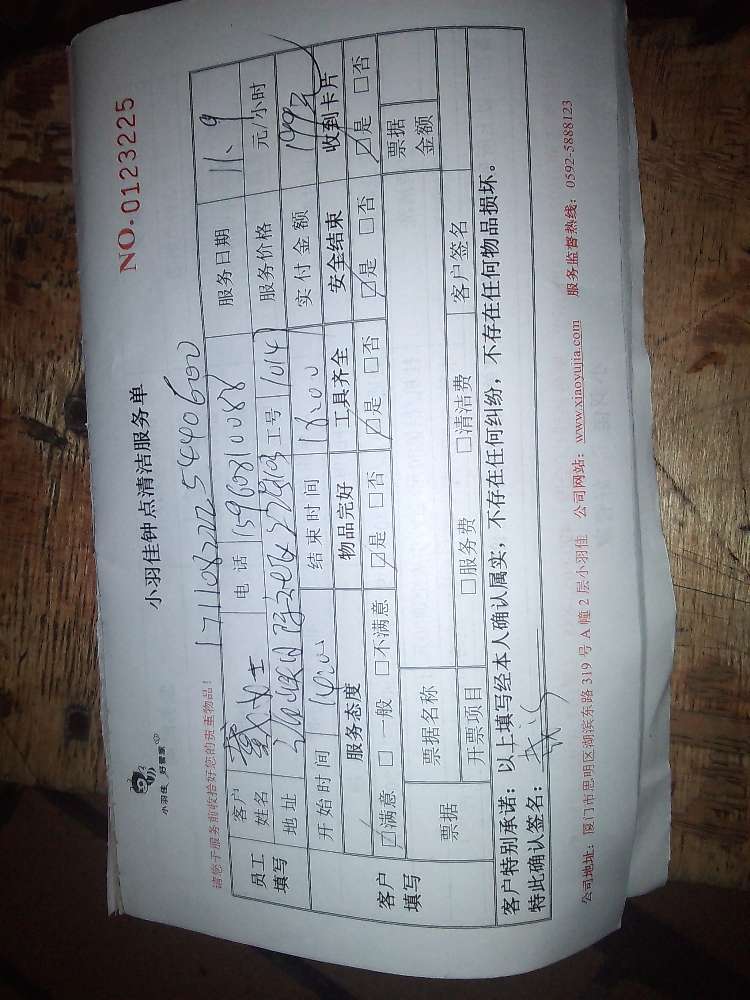 小羽佳 好管家
小羽佳钟点清洁服务单
NO.0123225
请您于服务前收拾好您的贵重物品!
员工填写
客户姓名 女士 电话 15960810088 服务日期 11.9
地址 工号 1014 服务价格 元/小时
开始时间 14:00 结束时间 18:00 实付金额
客户填写
服务态度 物品完好 工具齐全 安全结束 收到卡片
☑满意 □一般 □不满意 ☑是 □否 ☑是 □否 ☑是 □否 ☑是 □否
票据 票据名称 票据金额
开票项目 □服务费 □清洁费 客户签名
客户特别承诺:以上填写经本人确认属实,不存在任何纠纷,不存在任何物品损坏。
特此确认签名:
公司地址:厦门市思明区湖滨东路 319 号 A 幢 2 层小羽佳 公司网站:www.xiaoyujia.com 服务监督热线:0592-5888123